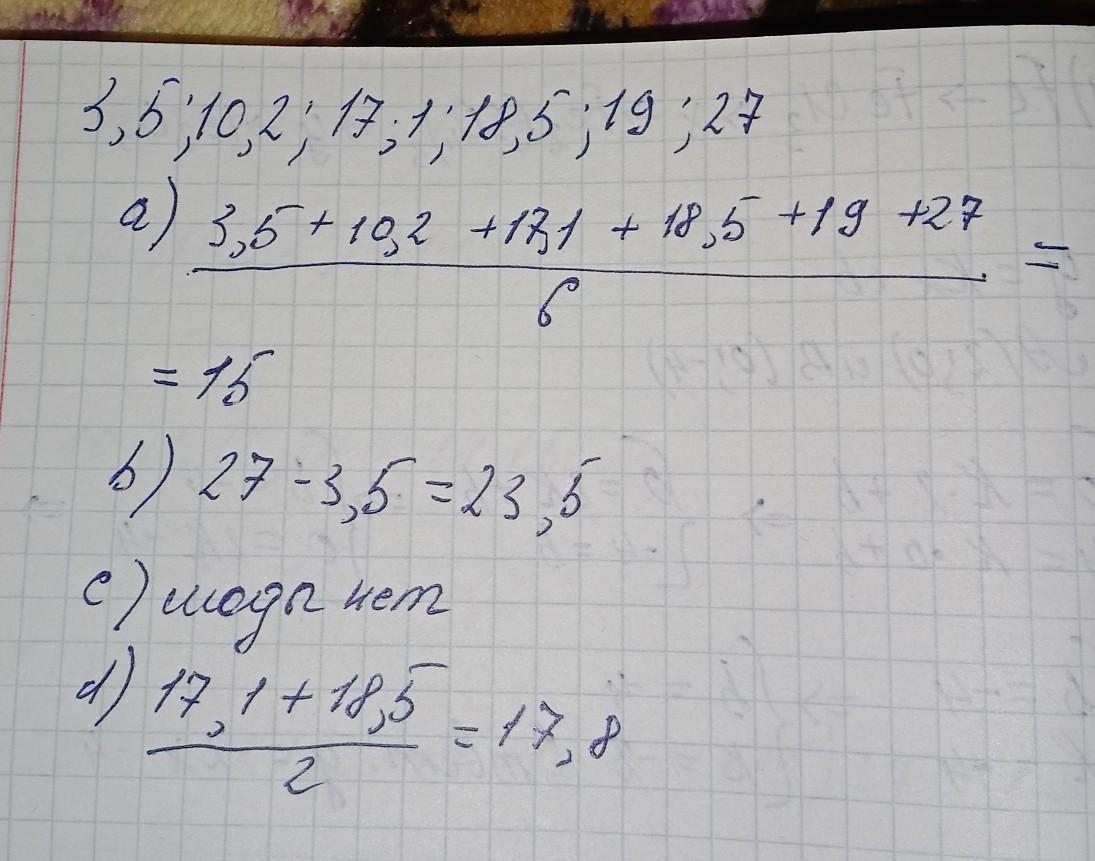 3,5; 10,2; 17,1; 18,5; 19; 27
a) 3,5 + 10,2 + 17,1 + 18,5 + 19 + 27 =
6
= 15
b) 27 - 3,5 = 23,5
c) моды нет
d) 17,1 + 18,5 = 17,8
2